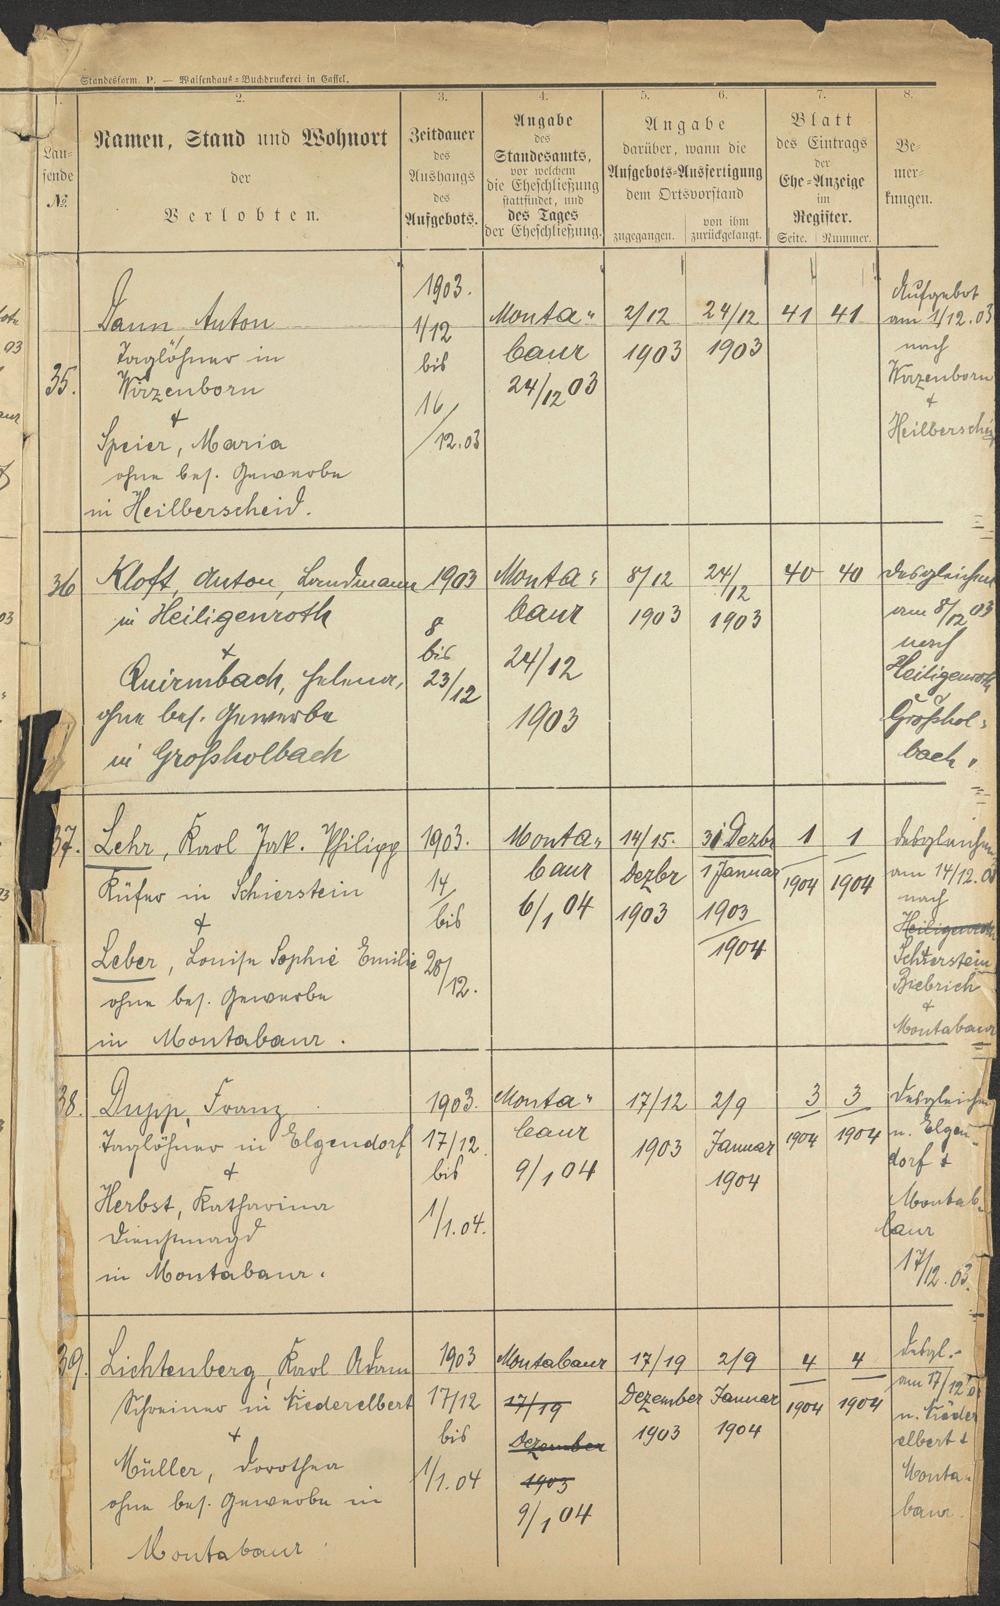 Standesform. P. — Waisenhaus-Buchdruckerei in Cassel.
1.
Lau-
fende
№.
2.
Namen, Stand und Wohnort
der
Verlobten.
3.
Zeitdauer
des
Aushangs
des
Aufgebots.
4.
Angabe
des
Standesamts,
vor welchem
die Eheschließung
stattfindet, und
des Tages
der Eheschließung.
5. 6.
Angabe
darüber, wann die
Aufgebots-Ausfertigung
dem Ortsvorstand
zugegangen.
von ihm
zurückgelangt.
7.
Blatt
des Eintrags
der
Ehe-Anzeige
im
Register.
Seite. Nummer.
8.
Be-
mer-
kungen.
35.
Dann, Anton
Taglöhner in
Wirzenborn
&
Speier, Maria
ohne bes. Gewerbe
in Heilberscheid.
1903.
1/12
bis
16/
12.03
Monta-
baur
24/12 03
2/12
1903
24/12
1903
41 41
Aufgebot
am 1/12.03
nach
Wirzenborn
&
Heilberscheid
36
Kloft, Anton, Landmann
in Heiligenroth
&
Quirmbach, Helena,
ohne bes. Gewerbe
in Großholbach
1903
8
bis
23/12
Monta-
baur
24/12
1903
8/12
1903
24/12
1903
40 40
desgleichen
am 8/12 03
nach
Heiligenroth
&
Großhol-
bach.
37.
Lehr, Karl Jak. Philipp
Küfer in Schierstein
&
Leber, Louise Sophie Emilie
ohne bes. Gewerbe
in Montabaur.
1903.
14/
bis
28/12.
Monta-
baur
6/1 04
14/15.
Dezbr
1903
31 Dezbr
1 Januar
1903
1904
1
1904
1
1904
desgleichen
am 14/12.03
nach
Heiligenroth
Schierstein
Biebrich
&
Montabaur
38.
Dupp, Franz
Taglöhner in Elgendorf
&
Herbst, Katharina
Dienstmagd
in Montabaur.
1903.
17/12.
bis
1/1.04.
Monta-
baur
9/1 04
17/12
1903
2/9
Januar
1904
3
1904
3
1904
desgleichen
n. Elgen-
dorf &
Montab-
baur
17/12.03.
39.
Lichtenberg, Karl Adam
Schreiner in Niederelbert
&
Müller, Dorothea
ohne bes. Gewerbe in
Montabaur
1903
17/12
bis
1/1.04
Montabaur
17/19
Dezember
1903
9/1 04
17/19
Dezember
1903
2/9
Januar
1904
4
1904
4
1904
desgl.-
am 17/12 03
n. Nieder
elbert &
Monta-
baur.